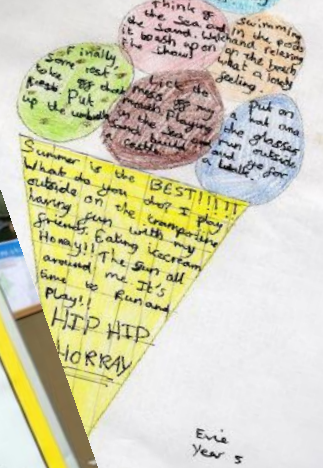 Think of
the Sea and
the Sand.
it wash up on
the shore!
Swimming
in the pools
and relaxing
on the beach
what a lovely
feeling
Finally,
Some rest
take off that
Put
up the
my
mouth. Playing
in the Sea and
Sand
Castle
Put on
a hat and
the glasses
and run outside
and go for
a walk!
Summer is the BEST!!!!!!
What do you do? I play
outside on the trampoline
having fun with my
friends. Eating icecream
Horray!! The sun all
around me. It's
time to Run and
Play!!
HIP HIP
HORRAY
Evie
Year 5